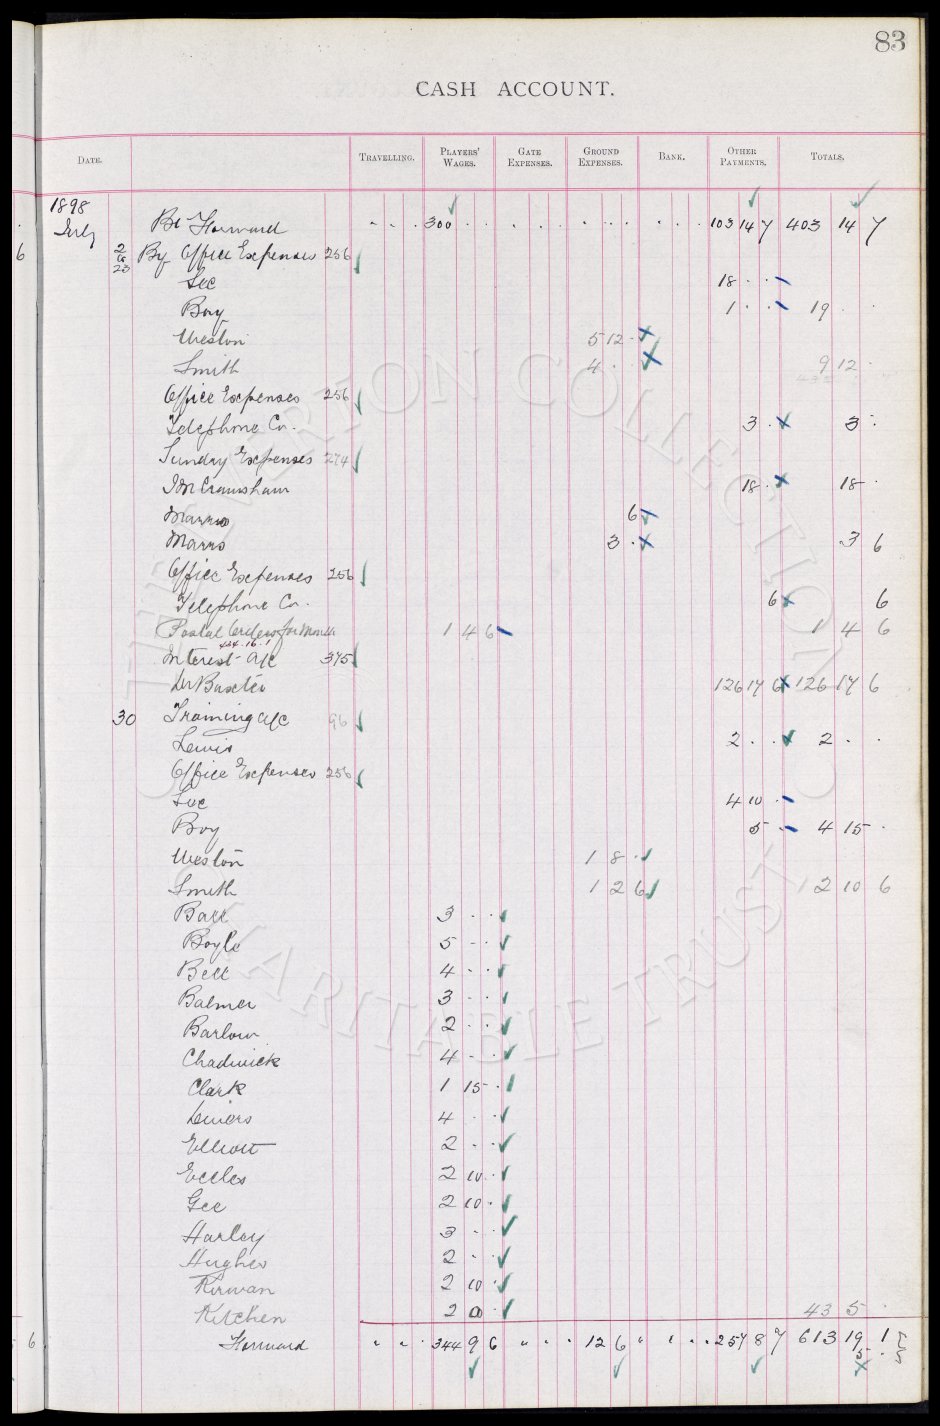 83
CASH ACCOUNT.
DATE. TRAVELLING. PLAYERS' WAGES. GATE EXPENSES. GROUND EXPENSES. BANK. OTHER PAYMENTS. TOTALS.
1898
July Bt Forward 300 . . 103 14 7 403 14 7
2 to 23 By Office Expenses 256
Lee 18 . .
Boy 1 . . 19 . .
Weston 5 12 .
Smith 4 . . 9 12 .
Office Expenses 256
Telephone Co. 3 . 3 .
Sunday Expenses 274
18 . 18 .
Marrs 6
Marrs 3 . 3 6
Office Expenses 256
Telephone Co. 6 6
Postal Orders for Month 1 4 6 1 4 6
424.16.1
Interest a/c 375
Dr Baxter 126 17 6 126 17 6
30 Training a/c 96
Lewis 2 . . 2 . .
Office Expenses 256
Lee 4 10 .
Boy 5 . 4 15 .
Weston 1 8 .
Smith 1 2 6 2 10 6
Barr 3 . .
Boyle 5 . .
Bell 4 . .
Balmer 3 . .
Barlow 2 . .
Chadwick 4 . .
Clark 1 15 .
4 . .
Elliott 2 . .
Eccles 2 10 .
Gee 2 10 .
Harley 3 . .
Hughes 2 . .
Kirwan 2 10 .
Kitchen 2 0 . 43 5 .
Forward 344 9 6 12 6 257 8 7 613 19 1
5
THE EVERTON COLLECTION CHARITABLE TRUST